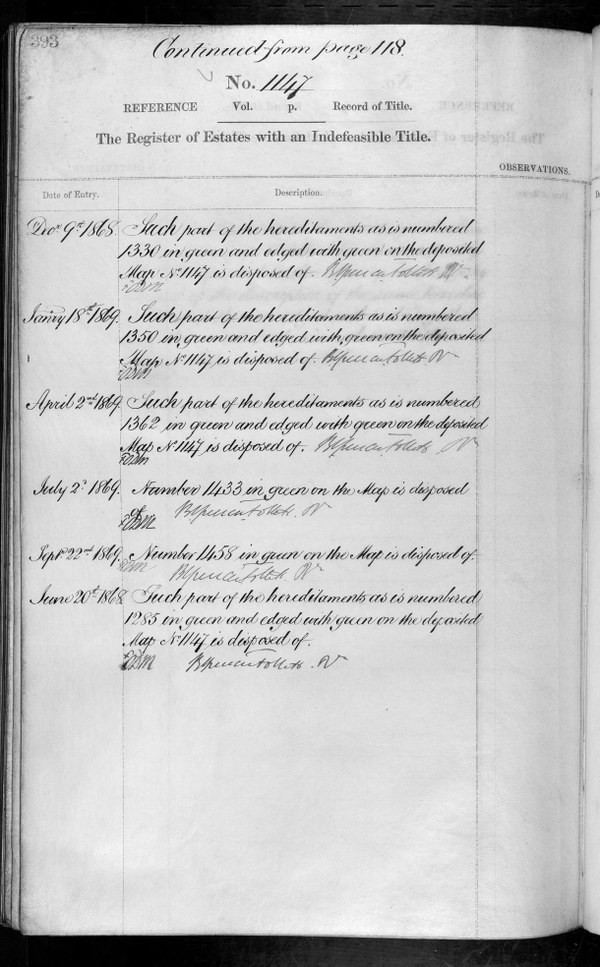 393
Continued from page 118.
No. 1147
REFERENCE Vol. p. Record of Title.
The Register of Estates with an Indefeasible Title.
OBSERVATIONS.
Date of Entry. Description.
Decr 9th 1868. Such part of the hereditaments as is numbered
1330 in green and edged with green on the deposited
Map No 1147 is disposed of.
Janry 18th 1869. Such part of the hereditaments as is numbered
1350 in green and edged with green on the deposited
Map No 1147 is disposed of.
April 2nd 1869. Such part of the hereditaments as is numbered
1362 in green and edged with green on the deposited
Map No 1147 is disposed of.
July 2d 1869. Number 1433 in green on the Map is disposed
of.
Septr 22nd 1869. Number 1458 in green on the Map is disposed of.
June 20th 1868. Such part of the hereditaments as is numbered
1285 in green and edged with green on the deposited
Map No 1147 is disposed of.